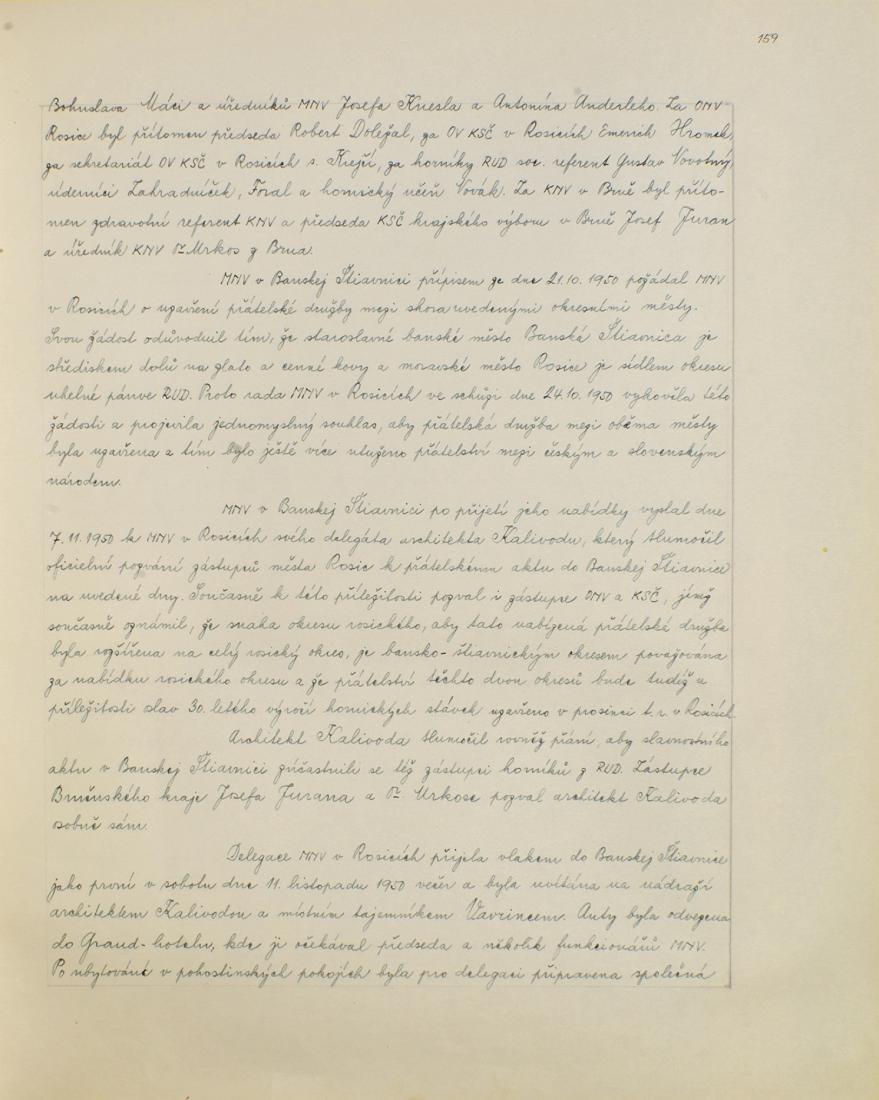 159
Bohuslava Máci a úředníků MNV Josefa Kniesla a Antonína Anderleho. Za ONV
Rosice byl přítomen předseda Robert Doležal, za OV KSČ v Rosicích Emerich Hromek,
za sekretariát OV KSČ v Rosicích s. Krejčí, za horníky RUD soc. referent Gustav Novotný,
úderníci Zahradníček, Foral a hornický učeň Novák. Za KNV v Brně byl příto-
men zdravotní referent KNV a předseda KSČ krajského výboru v Brně Josef Juran
a úředník KNV Dr. Mrkos z Brna.
MNV v Banskej Štiavnici přípisem ze dne 21.10.1950 požádal MNV
v Rosicích o uzavření přátelské družby mezi shora uvedenými okresními městy.
Svou žádost odůvodnil tím, že staroslavné banské město Banská Štiavnica je
střediskem dolů na zlato a cenné kovy a moravské město Rosice je sídlem okresu
uhelné pánve RUD. Proto rada MNV v Rosicích ve schůzi dne 24.10.1950 vyhověla této
žádosti a projevila jednomyslný souhlas, aby přátelská družba mezi oběma městy
byla uzavřena a tím bylo ještě více utuženo přátelství mezi českým a slovenským
národem.
MNV v Banskej Štiavnici po přijetí jeho nabídky vyslal dne
7.11.1950 k MNV v Rosicích svého delegáta architekta Kalivodu, který tlumočil
oficielní pozvání zástupců města Rosic k přátelskému aktu do Banskej Štiavnice
na uvedené dny. Současně k této příležitosti pozval i zástupce ONV a KSČ, jimž
současně oznámil, že snaha okresu rosického, aby tato nabízená přátelská družba
byla rozšířena na celý rosický okres, je bansko-štiavnickým okresem považována
za nabídku rosického okresu a že přátelství těchto dvou okresů bude tudíž u
příležitosti slav 30. letého výročí hornických stávek uzavřeno v prosinci t. r. v Rosicích.
Architekt Kalivoda tlumočil rovněž přání, aby slavnostního
aktu v Banskej Štiavnici zúčastnili se též zástupci horníků z RUD. Zástupce
Brněnského kraje Josefa Jurana a Dr. Mrkose pozval architekt Kalivoda
osobně sám.
Delegace MNV v Rosicích přijela vlakem do Banskej Štiavnice
jako první v sobotu dne 11. listopadu 1950 večer a byla uvítána na nádraží
architektem Kalivodou a místním tajemníkem Vavrincem. Auty byla odvezena
do Grand-hotelu, kde ji očekával předseda a několik funkcionářů MNV.
Po ubytování v pohostinských pokojích byla pro delegaci připravena společná